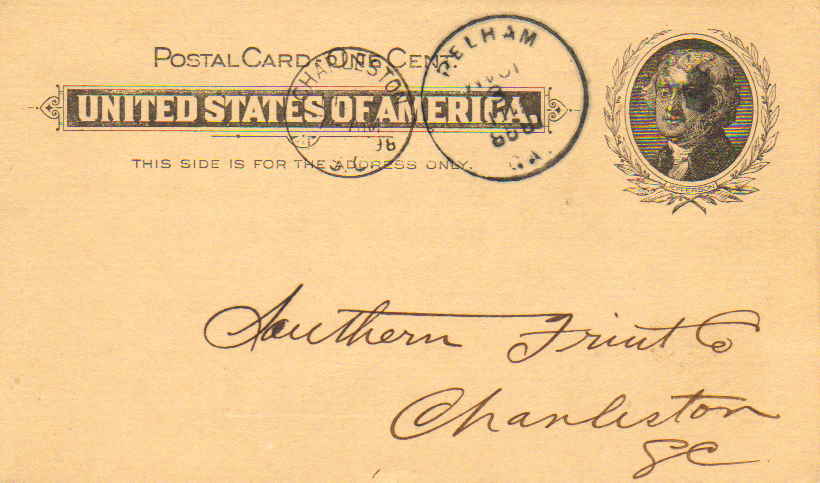 POSTAL CARD - ONE CENT
UNITED STATES OF AMERICA.
THIS SIDE IS FOR THE ADDRESS ONLY.
CHARLESTON
98
S.C.
PELHAM
1898
GA.
JEFFERSON
Southern Fruit Co
Charleston
SC